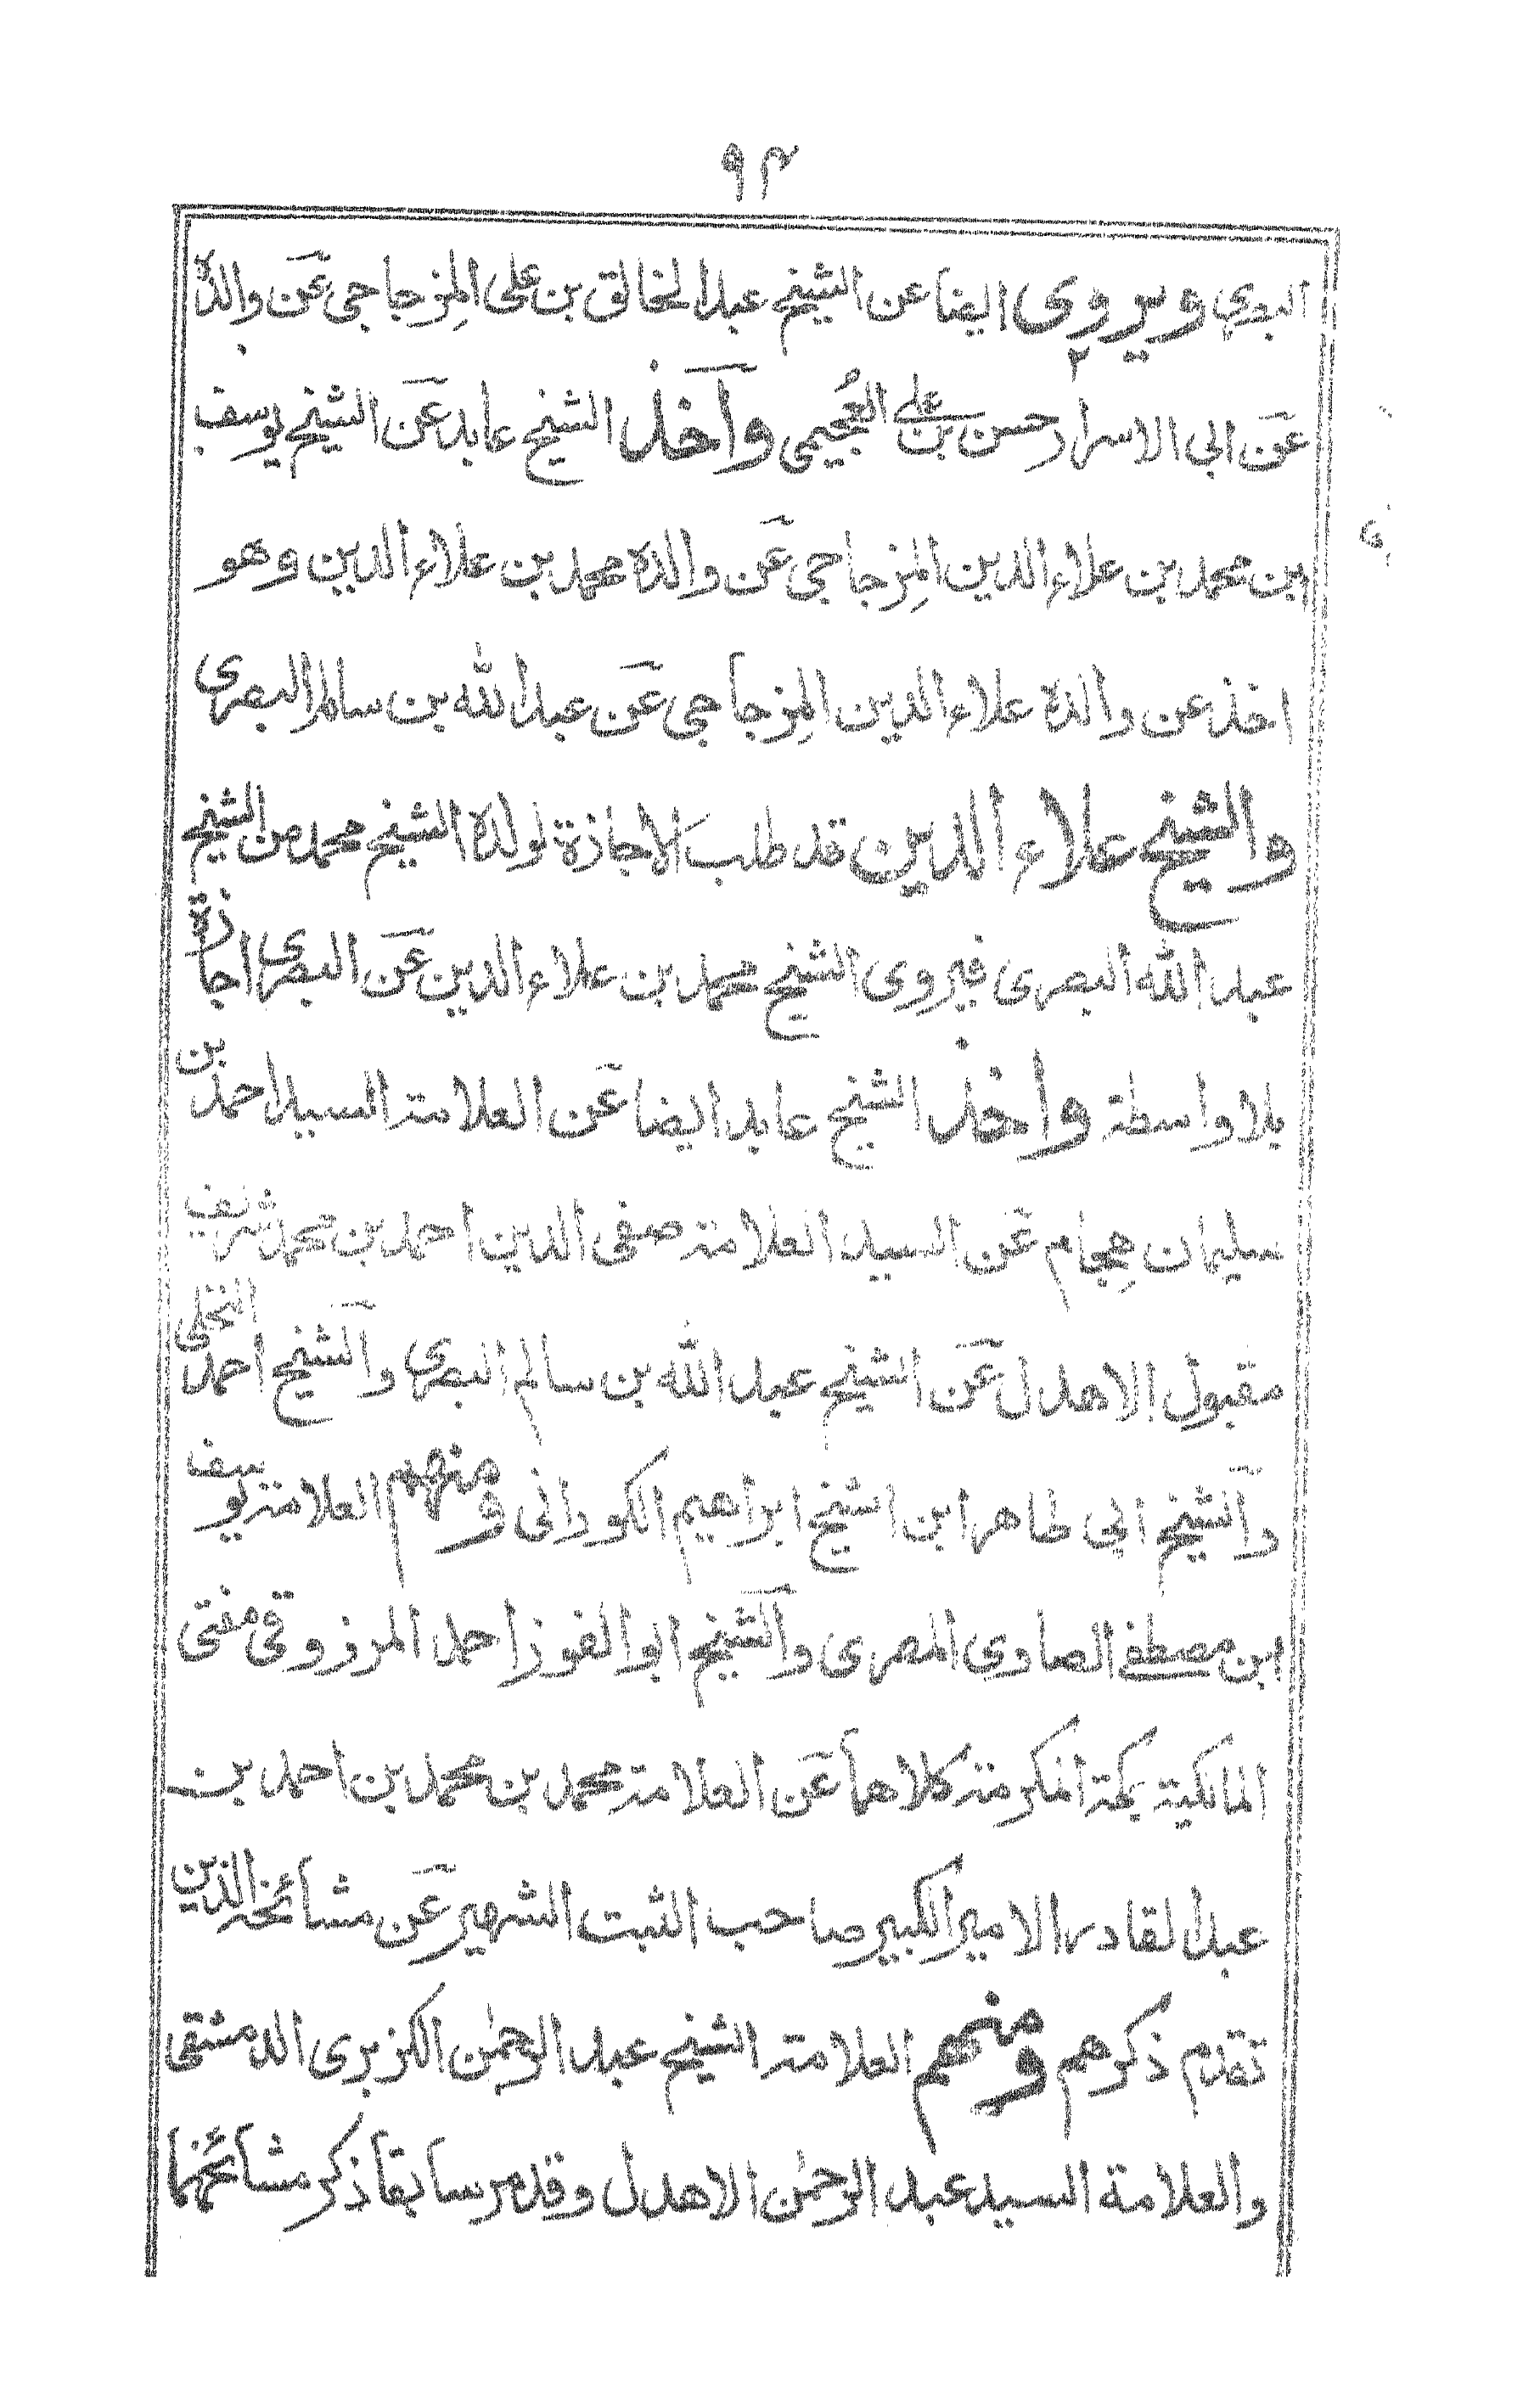 ٩٣
البصري ويروي ايضا عن الشيخ عبد الخالق بن على المِزجاجى عَن والدہ
عَن ابى الاسرار حسن بن على العُجيمى وآخذ الشيخ عابد عَن الشيخ يوسف
ابن محمد بن علاء الدين المِزجاجى عَن والدہ محمد بن علاء الدين وهو
اخذ عن والدہ علاء الدين المِزجاجى عَن عبد الله بن سالم البصرى
والشيخ علاء الدين قد طلب الاجازة لولدہ الشيخ محمد من الشيخ
عبد الله البصرى فيروى الشيخ محمد بن علاء الدين عَن البصرى اجازة
بلا واسطة واخذ الشيخ عابد ايضا عَن العلامة السيد احمد بن
سليمان هِجام عَن السيد العلامة صفى الدين احمد بن محمد شريف
مقبول الاهدل عَن الشيخ عبد الله بن سالم البصرى والشيخ احمد النخلى
والشيخ ابي طاهر ابن الشيخ ابراهيم الكورانى ومنهم العلامة يوسف
ابن مصطفى الصاوي المصرى والشيخ ابو الفوز احمد المرزوقى مفتى
المالكية بمكة المكرمة كلاهما عَن العلامة محمد بن محمد بن احمد بن
عبد القادر الامير الكبير صاحب الثبت الشهير عَن مشائخه الذين
تقدم ذكرهم ومنهم العلامة الشيخ عبد الرحمٰن الكزبرى الدمشقى
والعلامة السيد عبد الرحمٰن الاهدل وقد مر سابقا ذكر مشائخهما